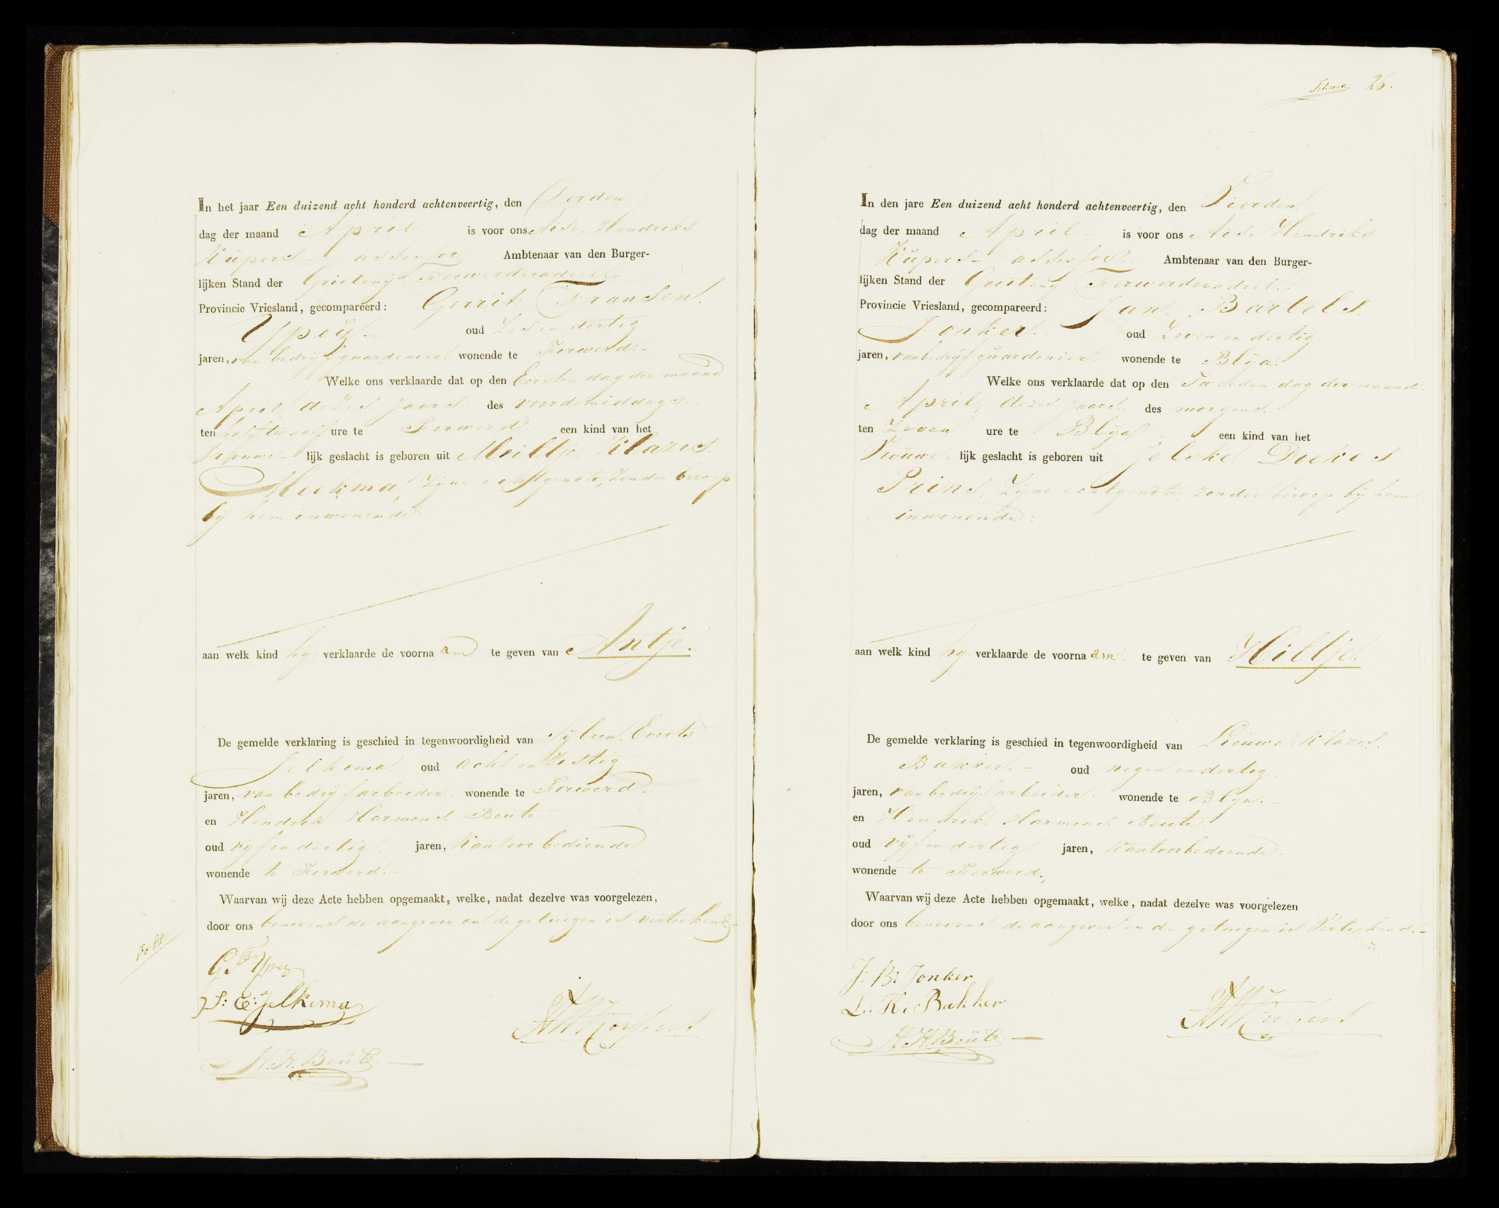 In het jaar Een duizend acht honderd achtenveertig, den Vierden
dag der maand April is voor ons Ate Hendriks
Kuipers assessor Ambtenaar van den Burger-
lijken Stand der Grietenij Ferwerderadeel
Provincie Vriesland, gecompareerd: Gerrit Fransen
Ypeij oud Zes en dertig
jaren, van bedrijf gardenier wonende te Ferwerd
Welke ons verklaarde dat op den Eersten dag der maand
April dezes jaars des voordemiddags
ten half twaalf ure te Ferwerd een kind van het
vrouwe lijk geslacht is geboren uit Meiltje Klazes
Hoekma, zijne echtgenote, zonder beroep
bij hem inwonende
aan welk kind hij verklaarde de voorna am te geven van Antje.
De gemelde verklaring is geschied in tegenwoordigheid van Everts
Jelkema oud acht en zestig
jaren, van bedrijf arbeider wonende te Ferwerd
en Hendrik Harmens Beute
oud vijf en dertig jaren, Kantoorbediende
wonende te Ferwerd.
Waarvan wij deze Acte hebben opgemaakt, welke, nadat dezelve was voorgelezen,
door ons benevens de aangever en de getuigen is
G. F. Ypeij
S: E: Jelkema
H. H. Beute
26.
In den jare Een duizend acht honderd achtenveertig, den Vierden
dag der maand April is voor ons Ate Hendriks
Kuipers assessor Ambtenaar van den Burger-
lijken Stand der Grietenij Ferwerderadeel
Provincie Vriesland, gecompareerd: Jan Bartels
Jonker oud Zeven en dertig
jaren, van bedrijf gardenier wonende te Blija
Welke ons verklaarde dat op den dag der maand
April dezes jaars des morgens
ten Zeven ure te Blija een kind van het
Vrouwe lijk geslacht is geboren uit Jeltje Doekes
Prins, zijne echtgenote, zonder beroep bij hem
inwonende:
aan welk kind hij verklaarde de voorna am te geven van Hiltje.
De gemelde verklaring is geschied in tegenwoordigheid van Klazes
Bakker oud negen en dertig
jaren, van bedrijf arbeider wonende te Blija.
en Hendrik Harmens Beute
oud vijf en dertig jaren, Kantoorbediende
wonende te Ferwerd.
Waarvan wij deze Acte hebben opgemaakt, welke, nadat dezelve was voorgelezen
door ons benevens de aangever en de getuigen is
J: B: Jonker
L. K. Bakker
H. H. Beute